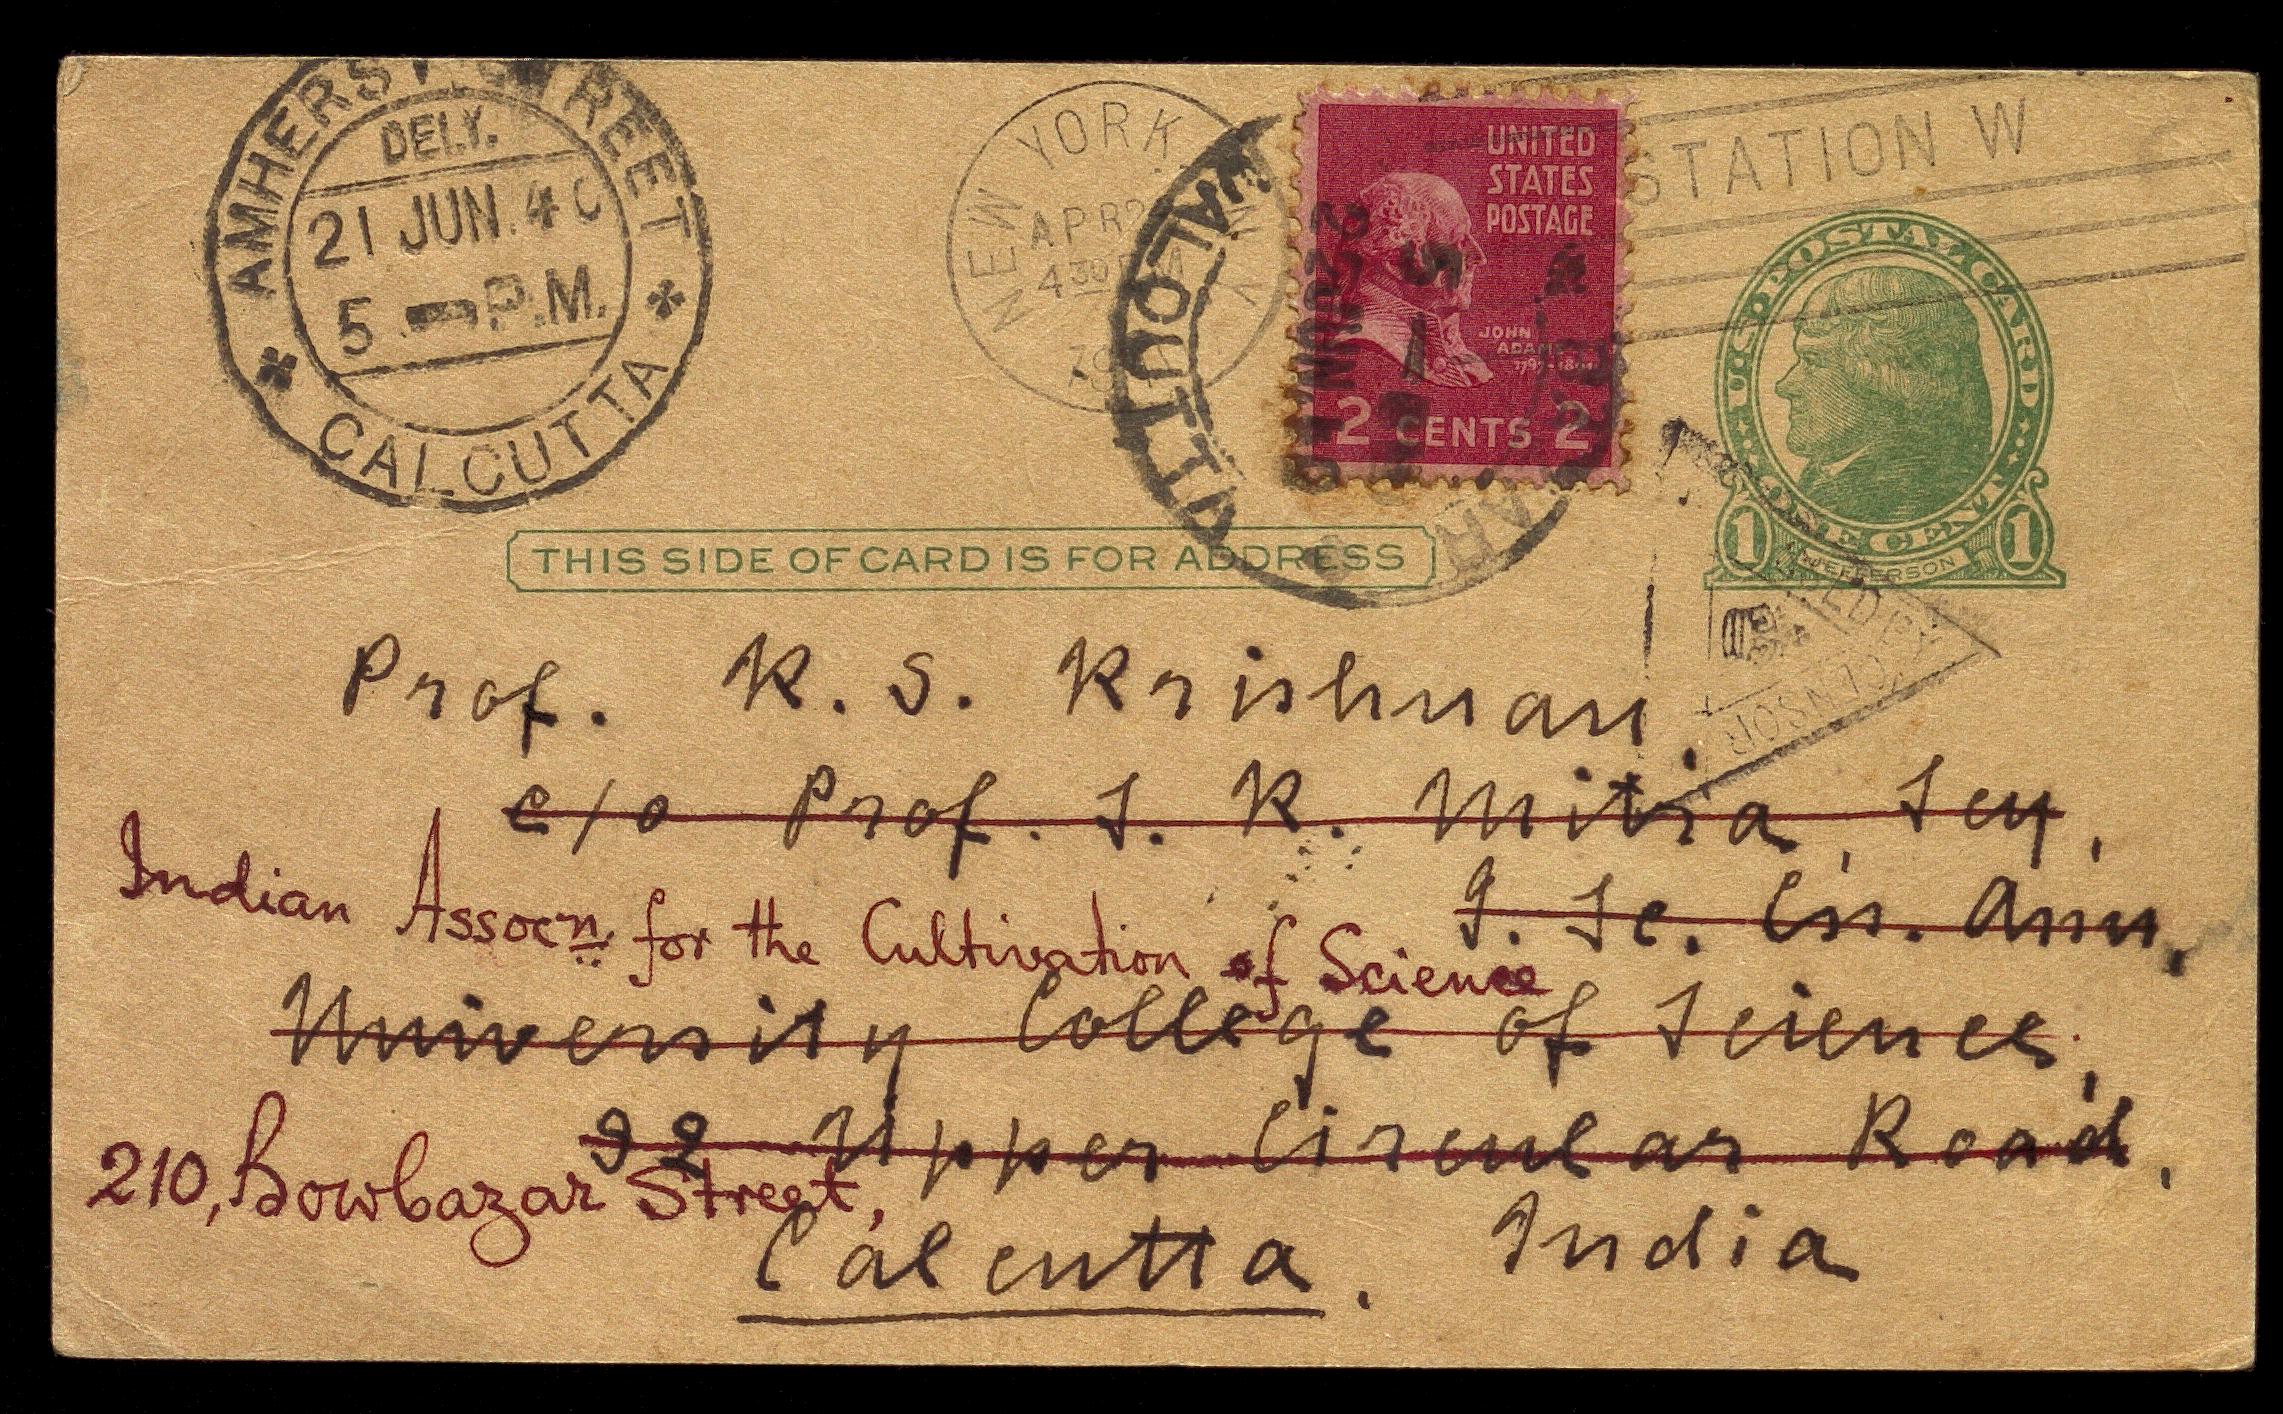 AMHERST STREET
DELY.
21 JUN. 40
5 — P.M.
CALCUTTA
NEW YORK, N.Y.
APR 2
4 30 PM
STATION W
UNITED
STATES
POSTAGE
JOHN
ADAMS
2 CENTS 2
U.S. POSTAL CARD
ONE CENT
1 JEFFERSON 1
THIS SIDE OF CARD IS FOR ADDRESS
CENSOR
Prof. K. S. Krishnan,
c/o Prof. S. K. Mitra,
Indian Assocn. for the Cultivation of Science
University College of Science,
92 Upper Circular Road,
210, Bowbazar Street,
Calcutta. India